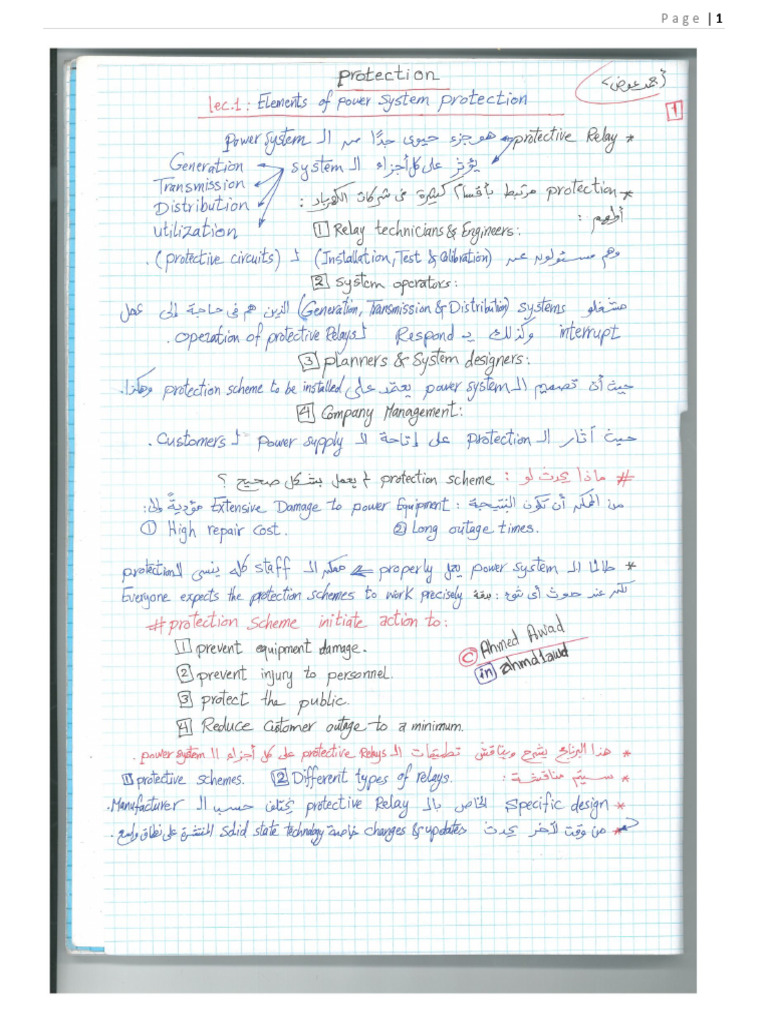 Page | 1
protection
(أحمد عوض)
lec.1: Elements of power System protection
1
* protective Relay هو جزء حيوى جدًا من الـ power system
يؤثر على كل أجزاء الـ system
Generation
Transmission
Distribution
utilization
* protection مرتبط بأقسام كثيرة فى شركات الكهرباء :
أهمهم :
1 Relay technicians & Engineers:
وهم مسئولون عن (Installation, Test & Calibration) لـ (protective circuits).
2 System operators:
مشغلو systems (Generation, Transmission & Distribution) الذين هم فى حاجة إلى عمل
interrupt وكذلك Respond لـ operation of protective Relays.
3 planners & System designers:
حيث أن تصميم الـ power system يعتمد على protection scheme to be installed وهكذا.
4 Company Management:
حيث آثار الـ protection على إتاحة الـ power supply لـ Customers.
# ماذا يحدث لو : protection scheme لم يعمل بشكل صحيح ؟
من الممكن أن تكون النتيجة : Extensive Damage to power Equipment مؤديةً إلى:
① High repair cost. ② Long outage times.
* طالما الـ power system يعمل properly ⇐ ممكن الـ staff كله ينسى الـ protection
لكن عند حدوث أى شئ : بدقة Everyone expects the protection schemes to work precisely
# protection scheme initiate action to:
1 prevent equipment damage.
2 prevent injury to personnel.
3 protect the public.
4 Reduce Customer outage to a minimum.
© Ahmed Awad
in ahmd1awd
* هذا البرنامج يشرح ويناقش تطبيقات الـ protective Relays على كل أجزاء الـ power system.
* سيتم مناقشة : 1 protective schemes. 2 Different types of relays.
* Specific design الخاص بالـ protective Relay يختلف حسب الـ Manufacturer.
* من وقت لآخر يحدث changes & updates خاصة solid state technology المنتشرة على نطاق واسع.